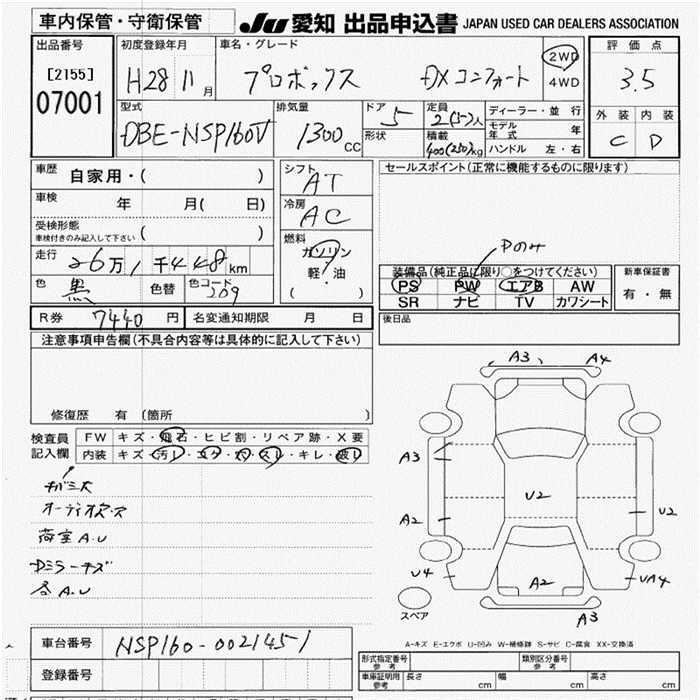 車内保管・守衛保管
JU 愛知 出品申込書 JAPAN USED CAR DEALERS ASSOCIATION
出品番号
[2155]
07001
初度登録年月
H28 11月
車名・グレード
プロボックス DXコンフォート
2WD
4WD
評価点
3.5
外装 内装
C D
型式
DBE-NSP160V
排気量
1300cc
ドア
5
形状
定員
2(5)人
積載
400(250)kg
ディーラー・並行
モデル年式 年
ハンドル 左・右
車歴
自家用・( )
車検
年 月( 日)
受検形態
車検付きのみ記入して下さい ( )
走行
26万1千448km
色
黒
色替
色コード
209
シフト
AT
冷房
AC
燃料
ガソリン
軽・油
( )
セールスポイント(正常に機能するものに限ります)
Pのみ
装備品(純正品に限り○をつけてください)
PS PW エアB AW
SR ナビ TV カワシート
新車保証書
有・無
後日品
R券 7440円
名変通知期限 月 日
注意事項申告欄(不具合内容等は具体的に記入して下さい)
修復歴 有 〔箇所 〕
検査員記入欄
FW キズ・飛石・ヒビ割・リペア跡・X要
内装 キズ・汚レ・コゲ・穴・スレ・キレ・破レ
オーディオレス
荷室A.U
Dミラーキズ
各A.U
A3 A4
A3
A2
U2
U2
U4
A2
UA4
A3
スペア
A-キズ E-エクボ U-凹み W-補修跡 S-サビ C-腐食 XX-交換済
車台番号
NSP160-0021451
登録番号
形式指定番号 参考
類別区分番号 参考
車庫証明用 参考
長さ cm
幅 cm
高さ cm